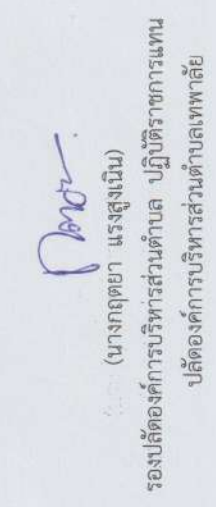 (นางกฤตยา แรงสูงเนิน)
รองปลัดองค์การบริหารส่วนตำบล ปฏิบัติราชการแทน
ปลัดองค์การบริหารส่วนตำบลเทพาลัย